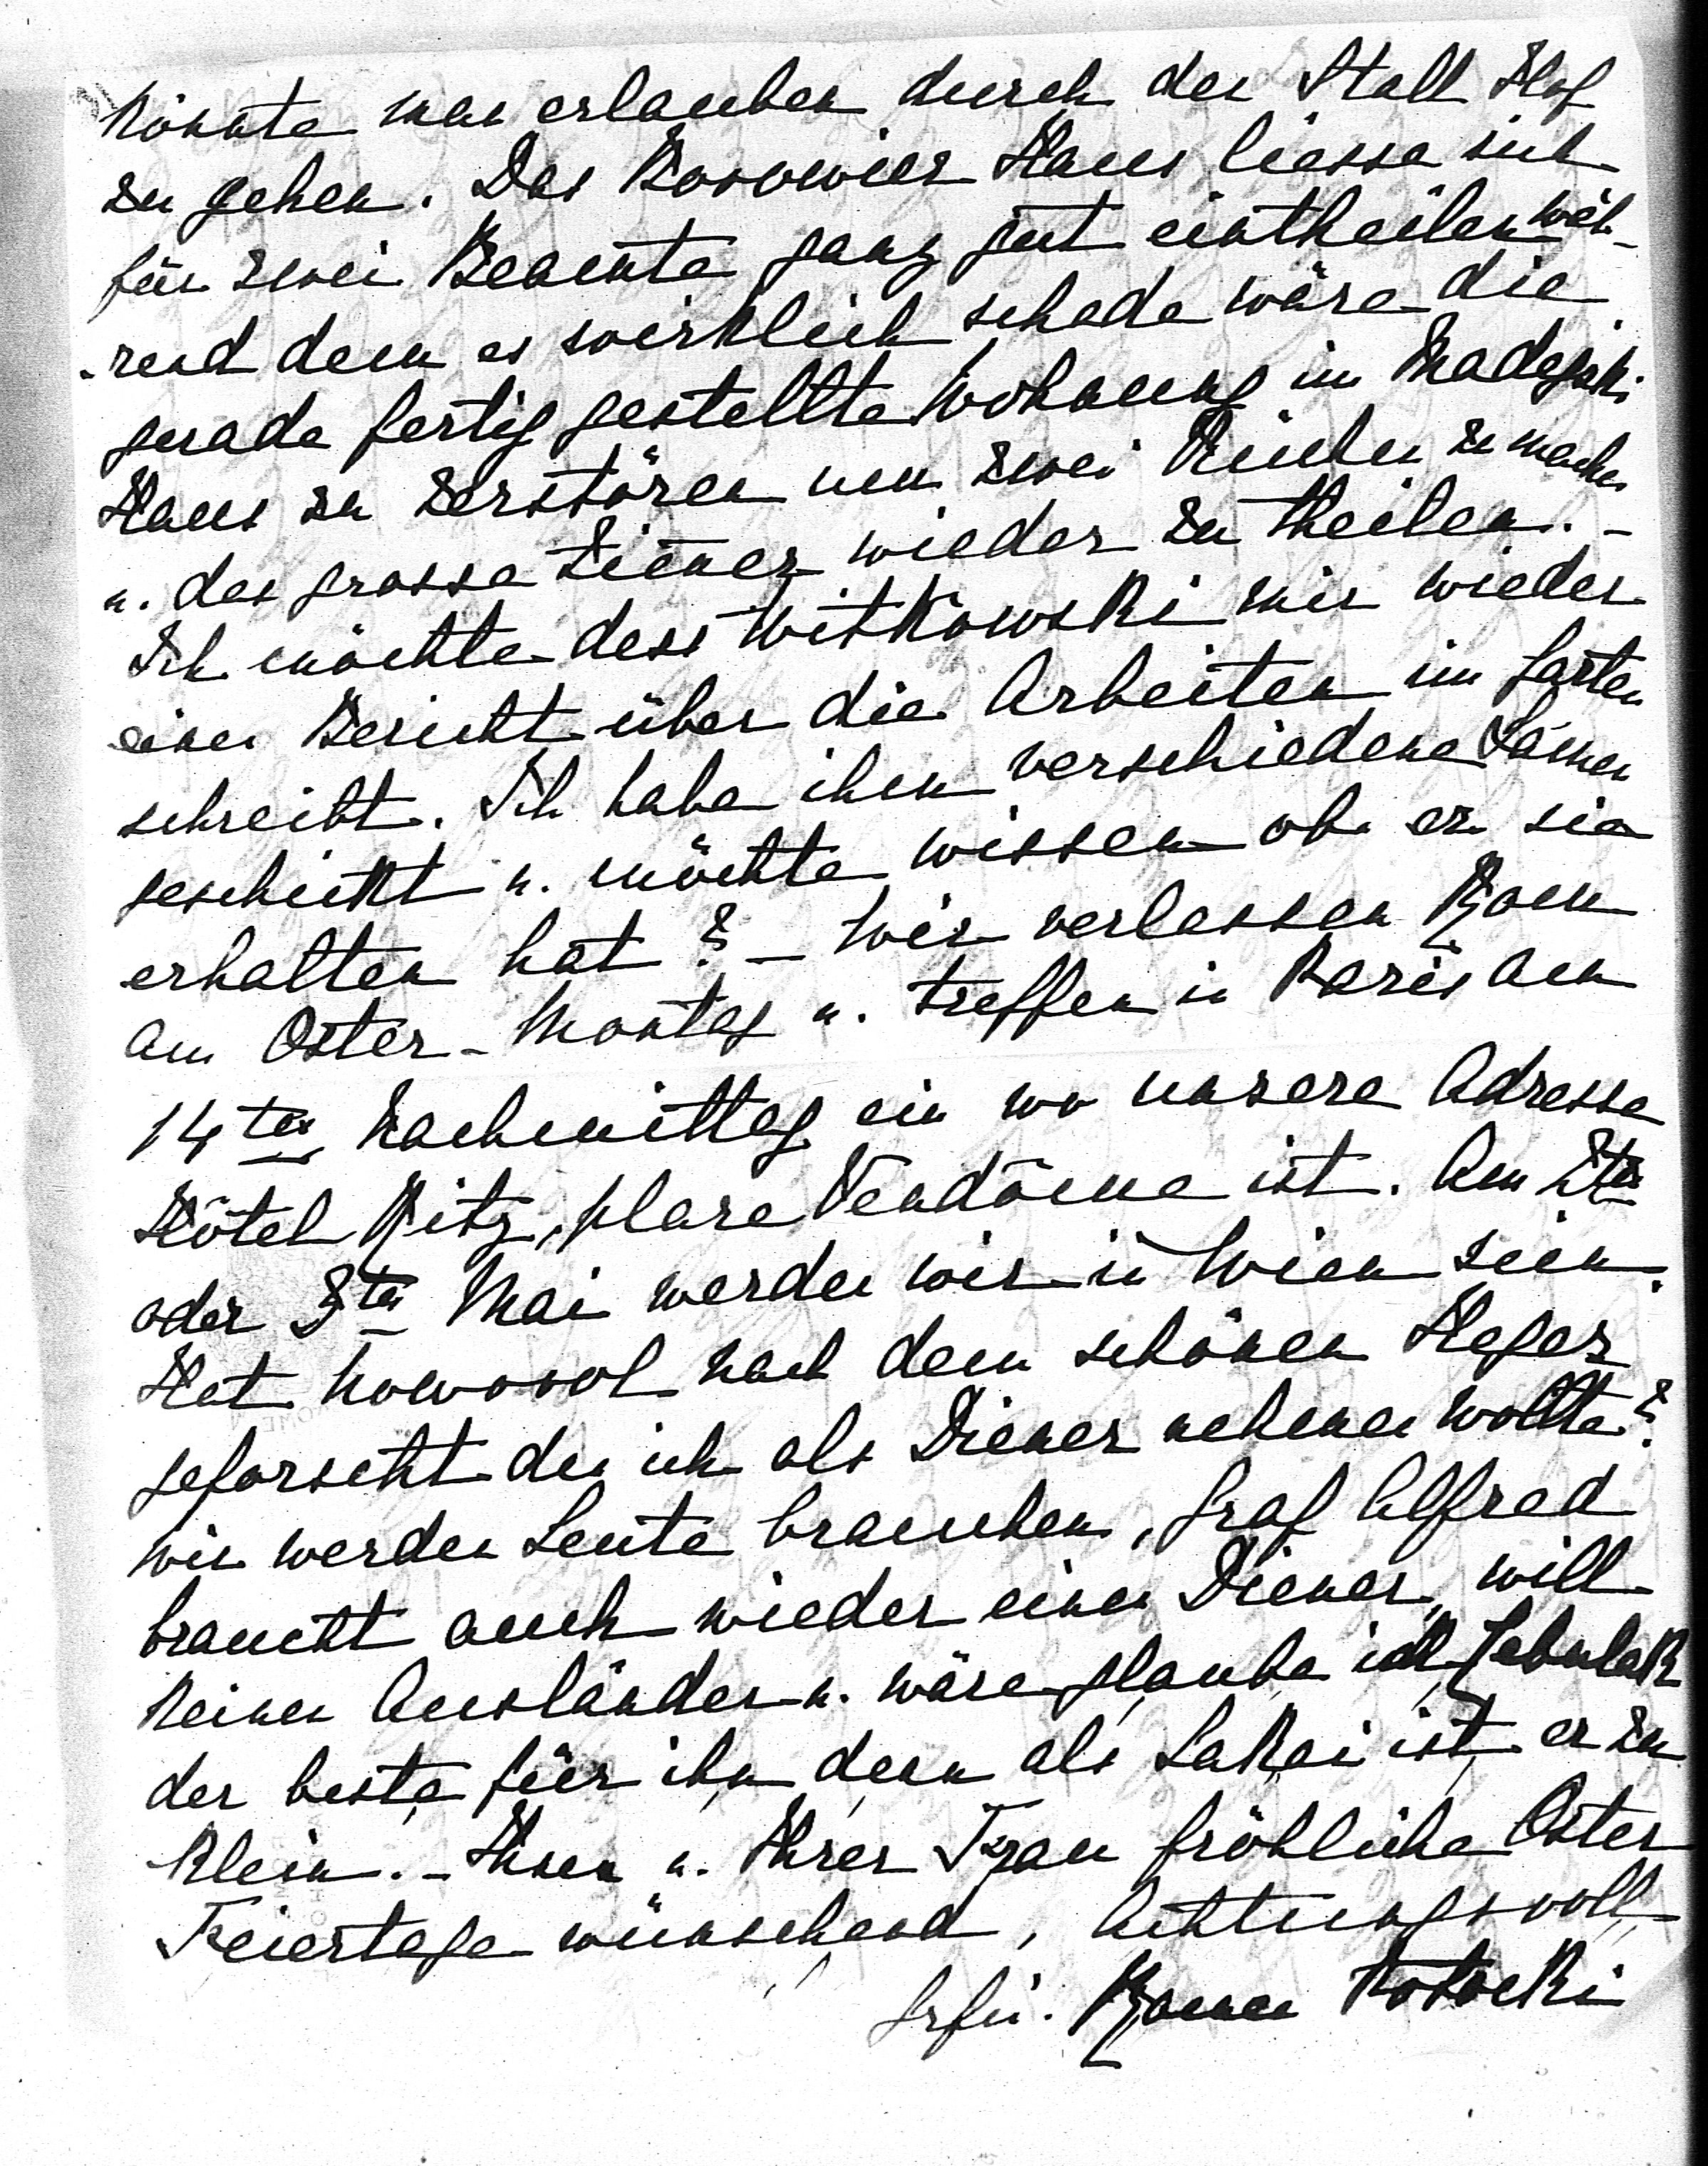 könnte man erlauben durch den Stall Hof
zu gehen. Das Haus liesse sich
für zwei Beamte ganz gut eintheilen wäh-
-rend dem es wirklich schade wäre die
gerade fertig gestellte Wohnung im
Haus zu zerstören um zwei Küchen zu machen
u. das grosse Zimmer wieder zu theilen. -
Ich möchte dass Witkowski mir wieder
einen Bericht über die Arbeiten im Garten
schreibt. Ich habe ihm verschiedene Samen
geschickt u. möchte wissen ob er sie
erhalten hat? - Wir verlassen Rom
am Oster-Montag u. treffen in Paris am
14ten Nachmittag ein wo unsere Adresse
Hôtel Ritz, place Vendôme ist. Am 2ten
oder 3ten Mai werden wir in Wien sein.
Hat nach dem schönen Heger
geforscht den ich als Diener nehmen wollte?
wir werden Leute brauchen, Graf Alfred
braucht auch wieder einen Diener, will
keinen Ausländer u. wäre glaube ich
der beste für ihn denn als Lakai ist er zu
klein. - Ihnen u. Ihrer Frau fröhliche Oster
Feiertage wünschend, Achtungsvoll
Grfin. Roman Potocki